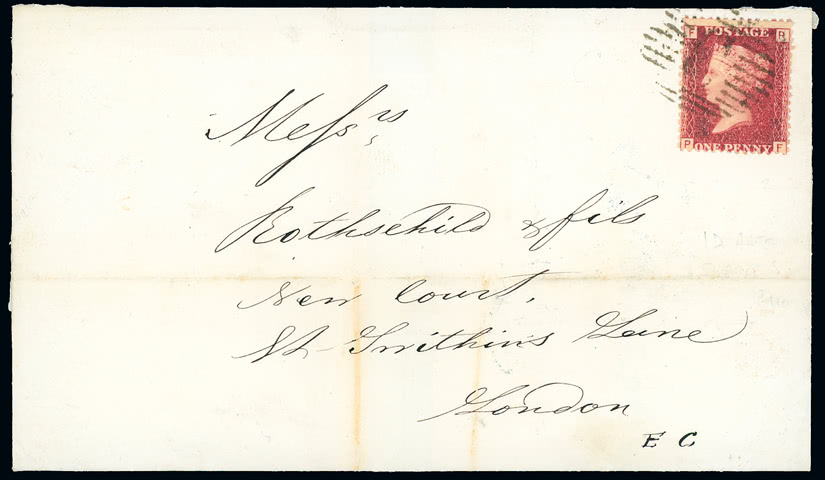 F POSTAGE R
P ONE PENNY F
Messrs,
Rothschild & fils
New Court,
St Swithins Lane
London
E C